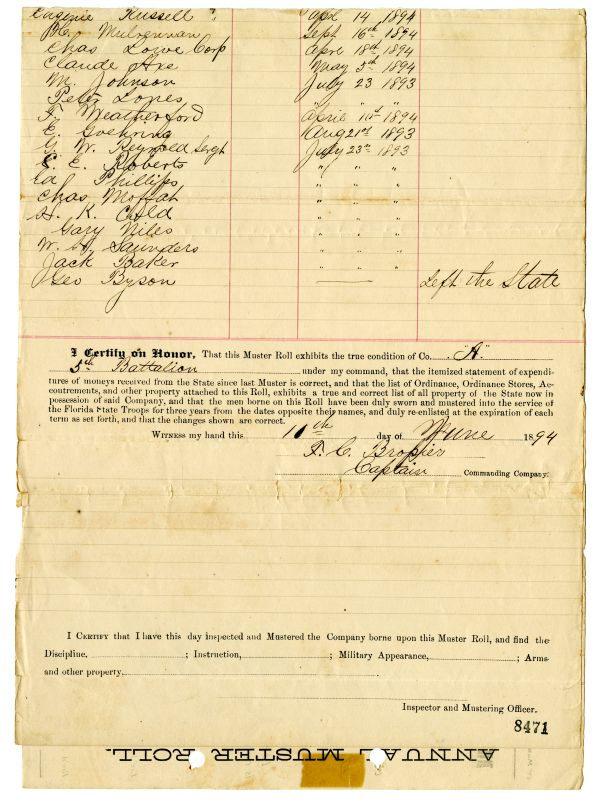 Eugenie Russell " April 14 1894
Mulrennan Sept 16th 1894
Chas Lowe Corp April 18th 1894
Claude Axe May 5th 1894
M. Johnson July 23 1893
Peter Lopes " " "
F. Weatherford April 11th 1894
E. Goehring Aug 21st 1893
G. W. Reynold Sergt July 23rd 1893
C. E. Roberts " " "
Ed Phillips " " "
Chas Moffat " " "
H. K. Child " " "
Gary Niles " " "
W. H. Saunders " " "
Jack Baker " " "
Geo Byson —— Left the State
I Certify on Honor, That this Muster Roll exhibits the true condition of Co. "A"
5th Battalion under my command, that the itemized statement of expendi-
tures of moneys received from the State since last Muster is correct, and that the list of Ordinance, Ordinance Stores, Ac-
coutrements, and other property attached to this Roll, exhibits a true and correct list of all property of the State now in
possession of said Company, and that the men borne on this Roll have been duly sworn and mustered into the service of
the Florida State Troops for three years from the dates opposite their names, and duly re-enlisted at the expiration of each
term as set forth, and that the changes shown are correct.
Witness my hand this 11th day of June 1894
F. C. Brossier
Captain Commanding Company.
I Certify that I have this day inspected and Mustered the Company borne upon this Muster Roll, and find the
Discipline, ; Instruction, ; Military Appearance, ; Arms
and other property,
Inspector and Mustering Officer.
8471
ANNUAL MUSTER ROLL.